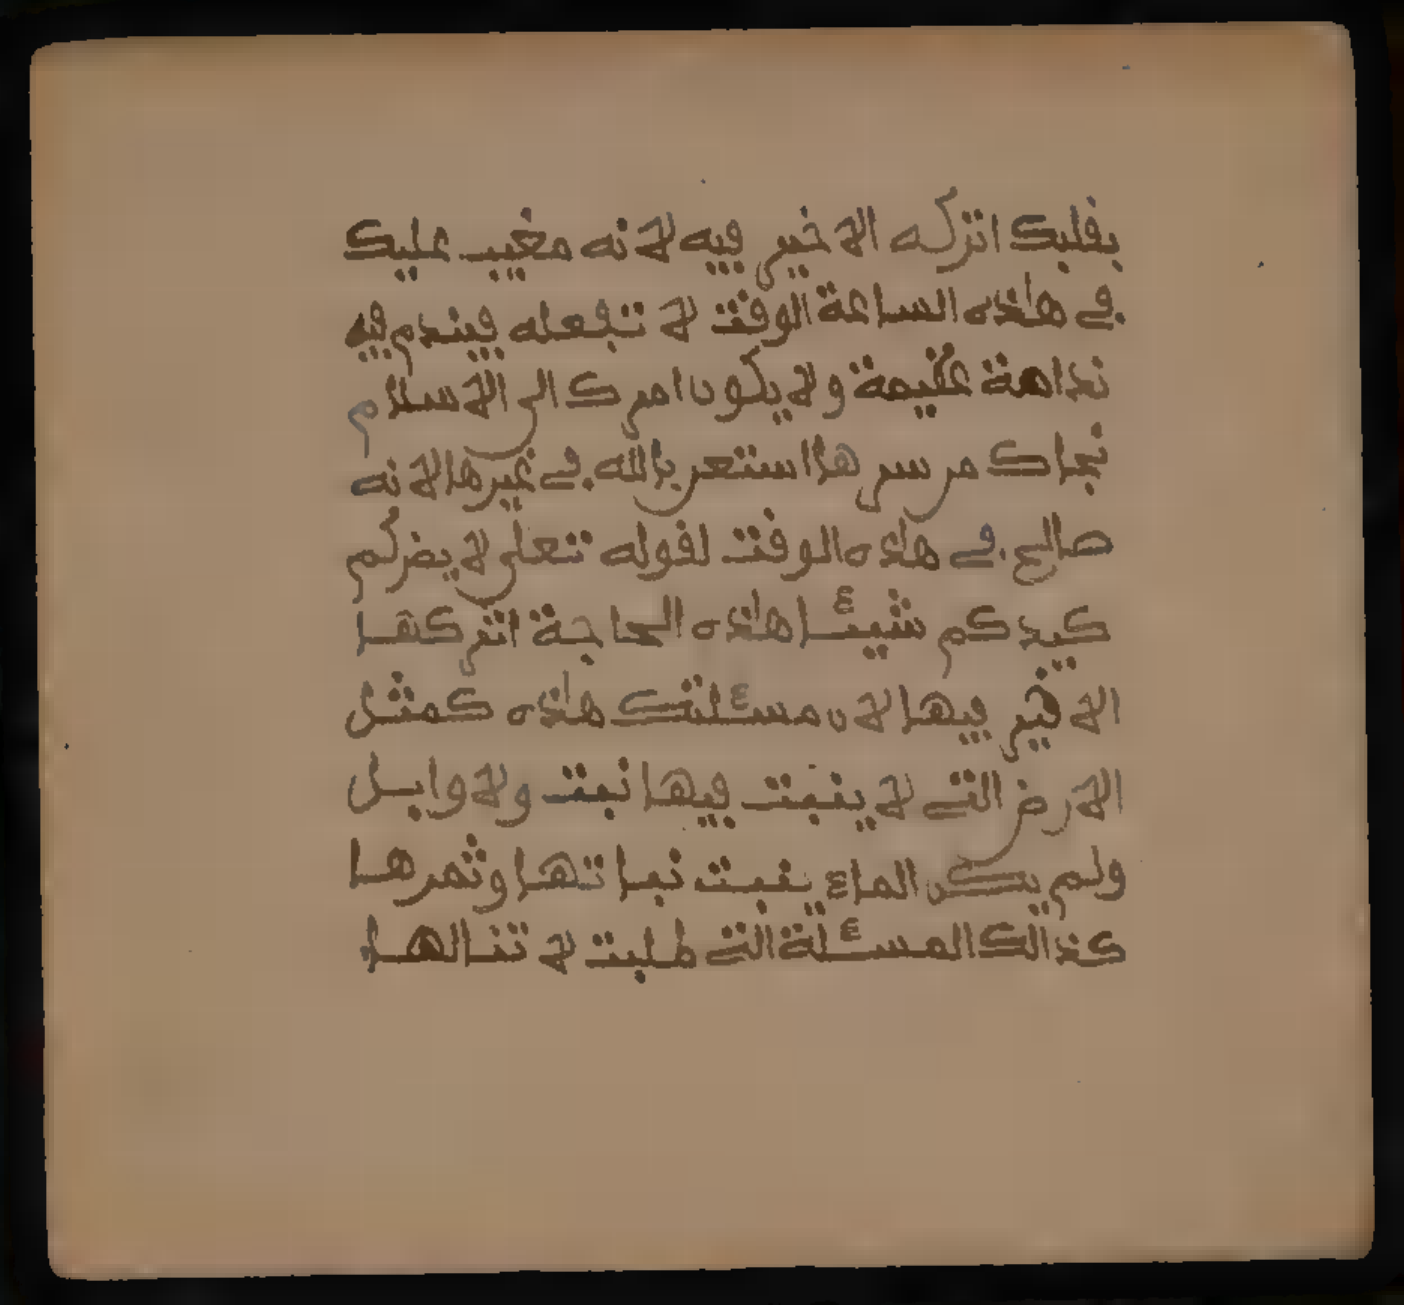 بقلبك اتركه الا خير فيه لا نه مغيب عليك
في هاذه الساعة الوقت لا تفعله فيندم فيه
ندامة عظيمة ولا يكون امرك الى الاسلام
نجاك من سر هذا استعن بالله في غيرها لا نه
صالح في هاذه الوقت لقوله تعلى لا يضركم
كيدكم شيئا هاذه الحاجة اتركها
الا خير فيها لان مسئلتك هاذه كمثل
الارض التي لا ينبت فيها نبت ولا وابل
ولم يكن الماء ينبت نباتها وثمرها
كذالك المسئلة التي طلبت لا تنالها